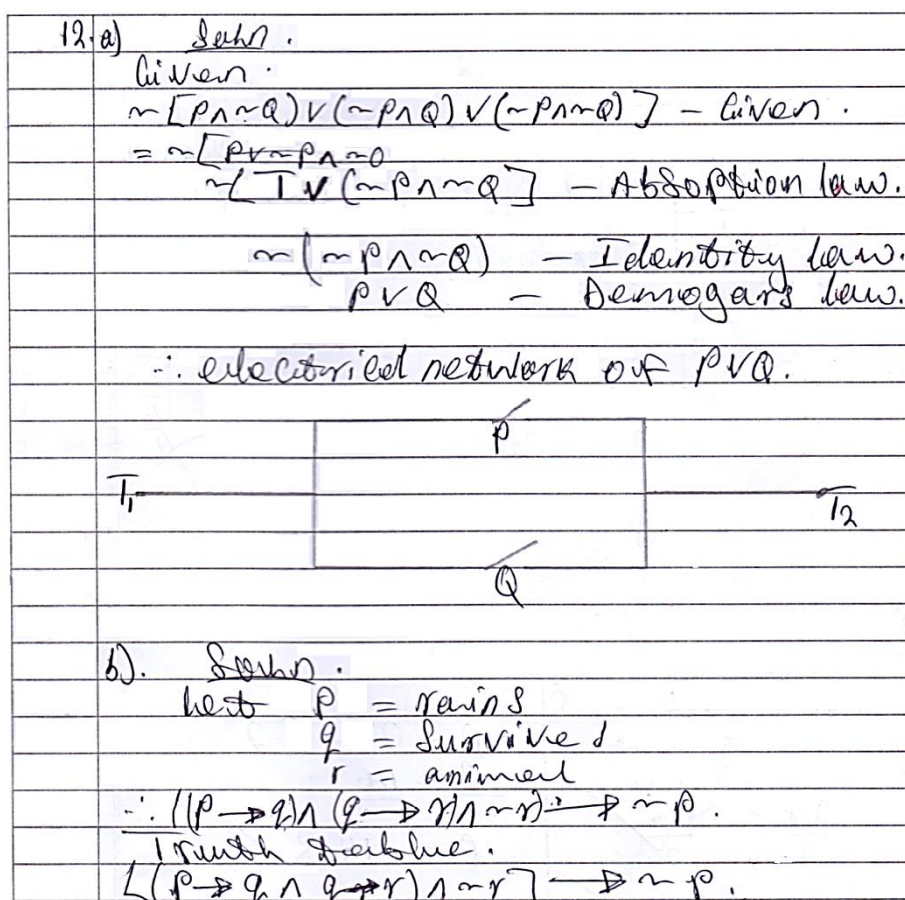 12. a) Soln.
Given.
~[P∧~Q)∨(~P∧Q)∨(~P∧~Q)] - Given.
= ~[P∨~P∧~Q
~[T∨(~P∧~Q] - Absoption law.
~(~P∧~Q) - Identity law.
P∨Q - Demogars law.
∴ electrical network of P∨Q.
P
T1 T2
Q
b). Soln.
Let P = rains
q = Survived
r = animal
∴ ((P→q)∧(q→r)∧~r) → ~p.
Truth table.
[(P→q ∧ q→r)∧~r] → ~p.